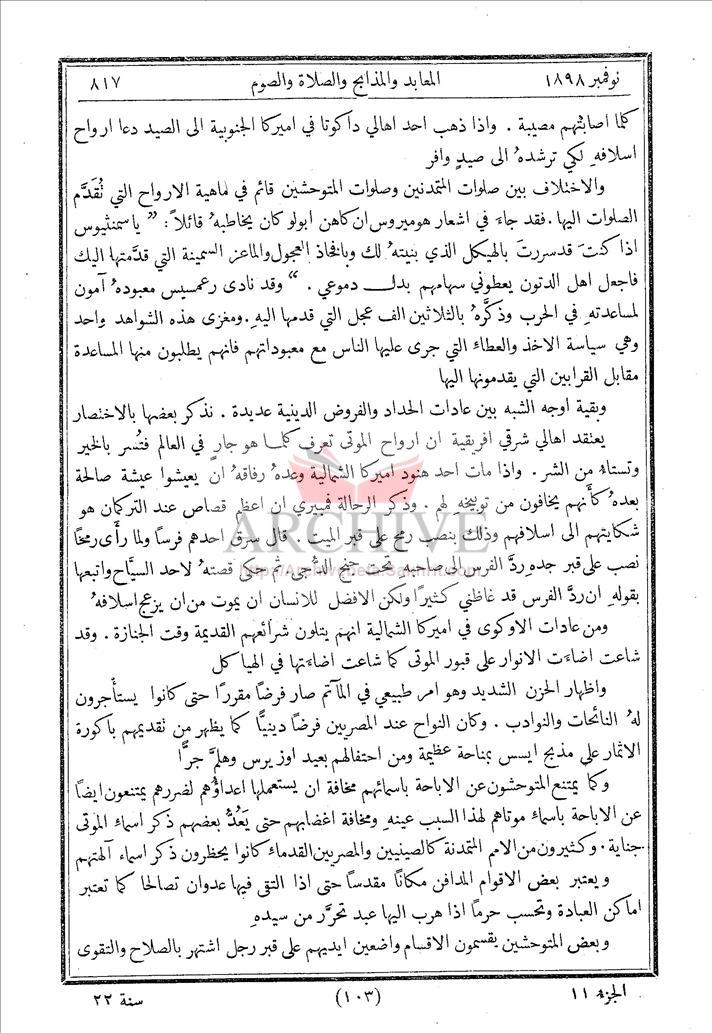 نوفمبر ١٨٩٨ المعابد والمذابح والصلاة والصوم ٨١٧
كلما اصابتهم مصيبة . واذا ذهب احد اهالي داكوتا في اميركا الجنوبية الى الصيد دعا ارواح
اسلافهِ لكي ترشدهُ الى صيدٍ وافر
والاختلاف بين صلوات المتمدنين وصلوات المتوحشين قائم في ماهية الارواح التي تُقدَّم
الصلوات اليها . فقد جاءَ في اشعار هوميروس ان كاهن ابولو كان يخاطبهُ قائلاً : ” ياسمنثيوس
اذا كنتَ قد سررتَ بالهيكل الذي بنيتهُ لك وبافخاذ العجول والماعز السمينة التي قدَّمتها اليك
فاجعل اهل الدتون يعطوني سهامهم بدل دموعي . “ وقد نادى رعمسيس معبودهُ آمون
لمساعدتهِ في الحرب وذكَّرهُ بالثلاثين الف عجل التي قدمها اليهِ . ومغزى هذه الشواهد واحد
وهي سياسة الاخذ والعطاء التي جرى عليها الناس مع معبوداتهم فانهم يطلبون منها المساعدة
مقابل القرابين التي يقدمونها اليها
وبقية اوجه الشبه بين عادات الحداد والفروض الدينية عديدة . نذكر بعضها بالاختصار
يعتقد اهالي شرقي افريقية ان ارواح الموتى تعرف كلما هو جارٍ في العالم فتُسر بالخير
وتستاء من الشر . واذا مات احد هنود اميركا الشمالية وعدهُ رفاقهُ ان يعيشوا عيشة صالحة
بعدهُ كأنهم يخافون من توبيخهِ لهم . وذكر الرحالة فمبيري ان اعظم قصاص عند التركمان هو
شكايتهم الى اسلافهم وذلك بنصب رمح على قبر الميت . قال سرق احدهم فرسًا ولما رأى رمحًا
نصب على قبر جدهِ ردَّ الفرس الى صاحبهِ تحت جنح الدُّجى ثم حكى قصتهُ لاحد السيَّاح واتبعها
بقولهِ ان ردَّ الفرس قد غاظني كثيرًا ولكن الافضل للانسان ان يموت من ان يزعج اسلافهُ
ومن عادات الاوكوى في اميركا الشمالية انهم يتلون شرائعهم القديمة وقت الجنازة . وقد
شاعت اضاءَت الانوار على قبور الموتى كما شاعت اضاءَتها في الهياكل
واظهار الحزن الشديد وهو امر طبيعي في المآتم صار فرضًا مقررًا حتى كانوا يستأجرون
لهُ النائحات والنوادب . وكان النواح عند المصريين فرضًا دينيًّا كما يظهر من تقديمهم باكورة
الاثمار على مذبح ايسس بمناحة عظيمة ومن احتفالهم بعيد اوزيرس وهلمَّ جرًّا
وكما يمتنع المتوحشون عن الاباحة باسمائهم مخافة ان يستعملها اعداؤُهم لضررهم يمتنعون ايضًا
عن الاباحة باسماء موتاهم لهذا السبب عينهِ ومخافة اغضابهم حتى يَعُدُّ بعضهم ذكر اسماء الموتى
جناية . وكثيرون من الامم المتمدنة كالصينيين والمصريين القدماء كانوا يحظرون ذكر اسماء آلهتهم
ويعتبر بعض الاقوام المدافن مكانًا مقدسًا حتى اذا التقى فيها عدوان تصالحا كما تعتبر
اماكن العبادة وتحسب حرمًا اذا هرب اليها عبد تحرَّر من سيدهِ
وبعض المتوحشين يقسمون الاقسام واضعين ايديهم على قبر رجل اشتهر بالصلاح والتقوى
الجزء ١١ (١٠٣) سنة ٢٢
ARCHIVE